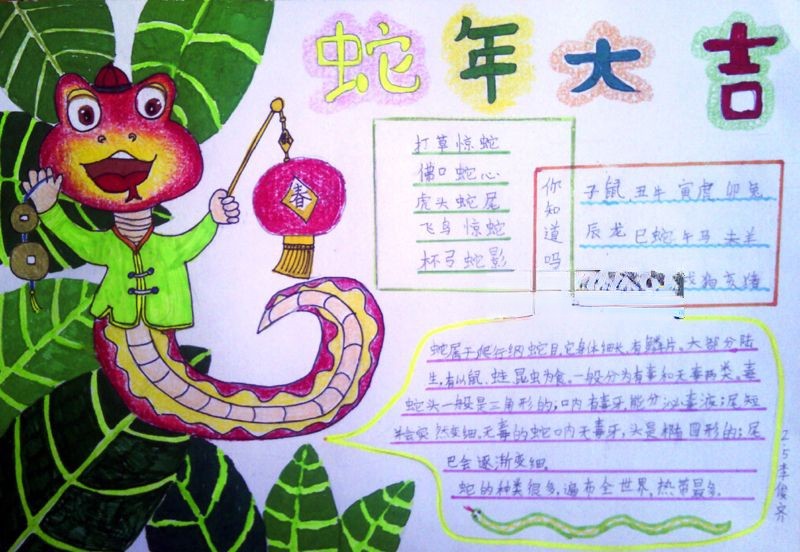 蛇年大吉
打草惊蛇
佛口蛇心
虎头蛇尾
飞鸟惊蛇
杯弓蛇影
你知道吗
子鼠 丑牛 寅虎 卯兔
辰龙 巳蛇 午马 未羊
戌狗 亥猪
春
蛇属于爬行纲蛇目,它身体细长,有鳞片。大部分陆
生,有以鼠、蛙、昆虫为食。一般分为有毒和无毒两类。毒
蛇头一般是三角形的;口内有毒牙,能分泌毒液;尾短
突然变细。无毒的蛇口内无毒牙,头是椭圆形的;尾
巴会逐渐变细。
蛇的种类很多,遍布全世界,热带最多。
25李俊齐